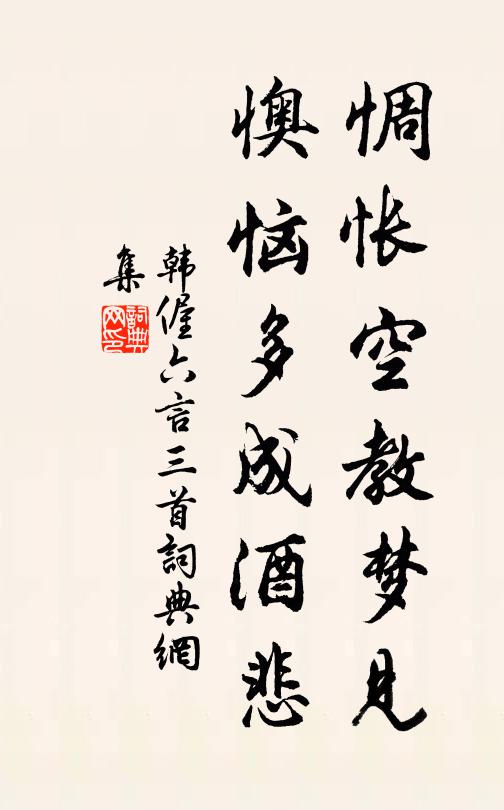 惆怅空教梦见
懊恼多成酒悲
韩偓六言三首詞典網
集
詞典
网印